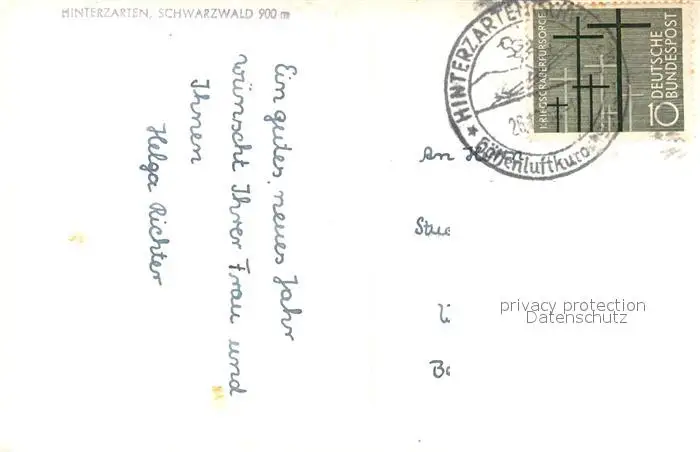 HINTERZARTEN, SCHWARZWALD 900 m
Ein gutes, neues Jahr
wünscht Ihrer Frau und
Ihnen
Helga Richter
HINTERZARTEN
Höhenluftkuro
KRIEGSGRÄBERFÜRSORGE
DEUTSCHE
BUNDESPOST
10
An H
privacy protection
Datenschutz